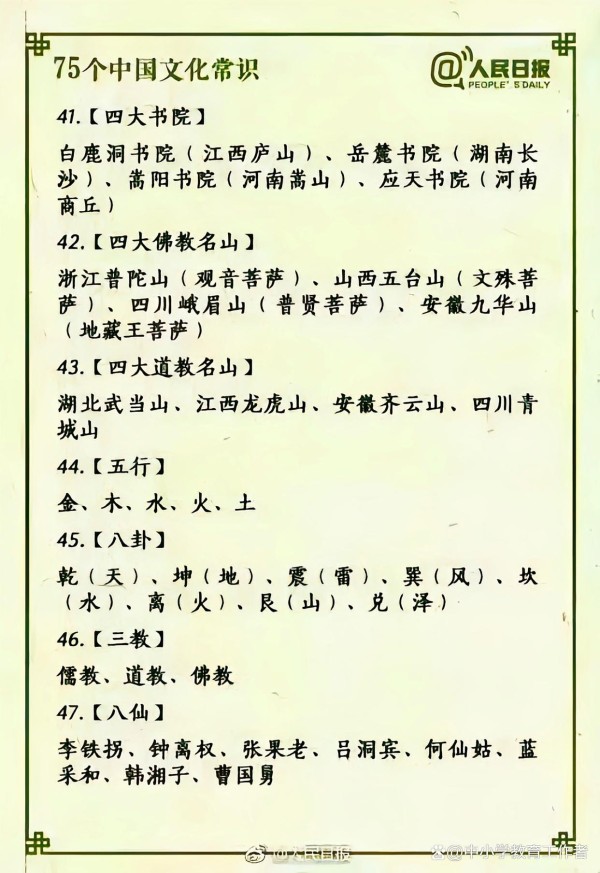 75个中国文化常识
@人民日报
PEOPLE'S DAILY
41.【四大书院】
白鹿洞书院（江西庐山）、岳麓书院（湖南长
沙）、嵩阳书院（河南嵩山）、应天书院（河南
商丘）
42.【四大佛教名山】
浙江普陀山（观音菩萨）、山西五台山（文殊菩
萨）、四川峨眉山（普贤菩萨）、安徽九华山
（地藏王菩萨）
43.【四大道教名山】
湖北武当山、江西龙虎山、安徽齐云山、四川青
城山
44.【五行】
金、木、水、火、土
45.【八卦】
乾（天）、坤（地）、震（雷）、巽（风）、坎
（水）、离（火）、艮（山）、兑（泽）
46.【三教】
儒教、道教、佛教
47.【八仙】
李铁拐、钟离权、张果老、吕洞宾、何仙姑、蓝
采和、韩湘子、曹国舅
@人民日报
@中小学教育工作者